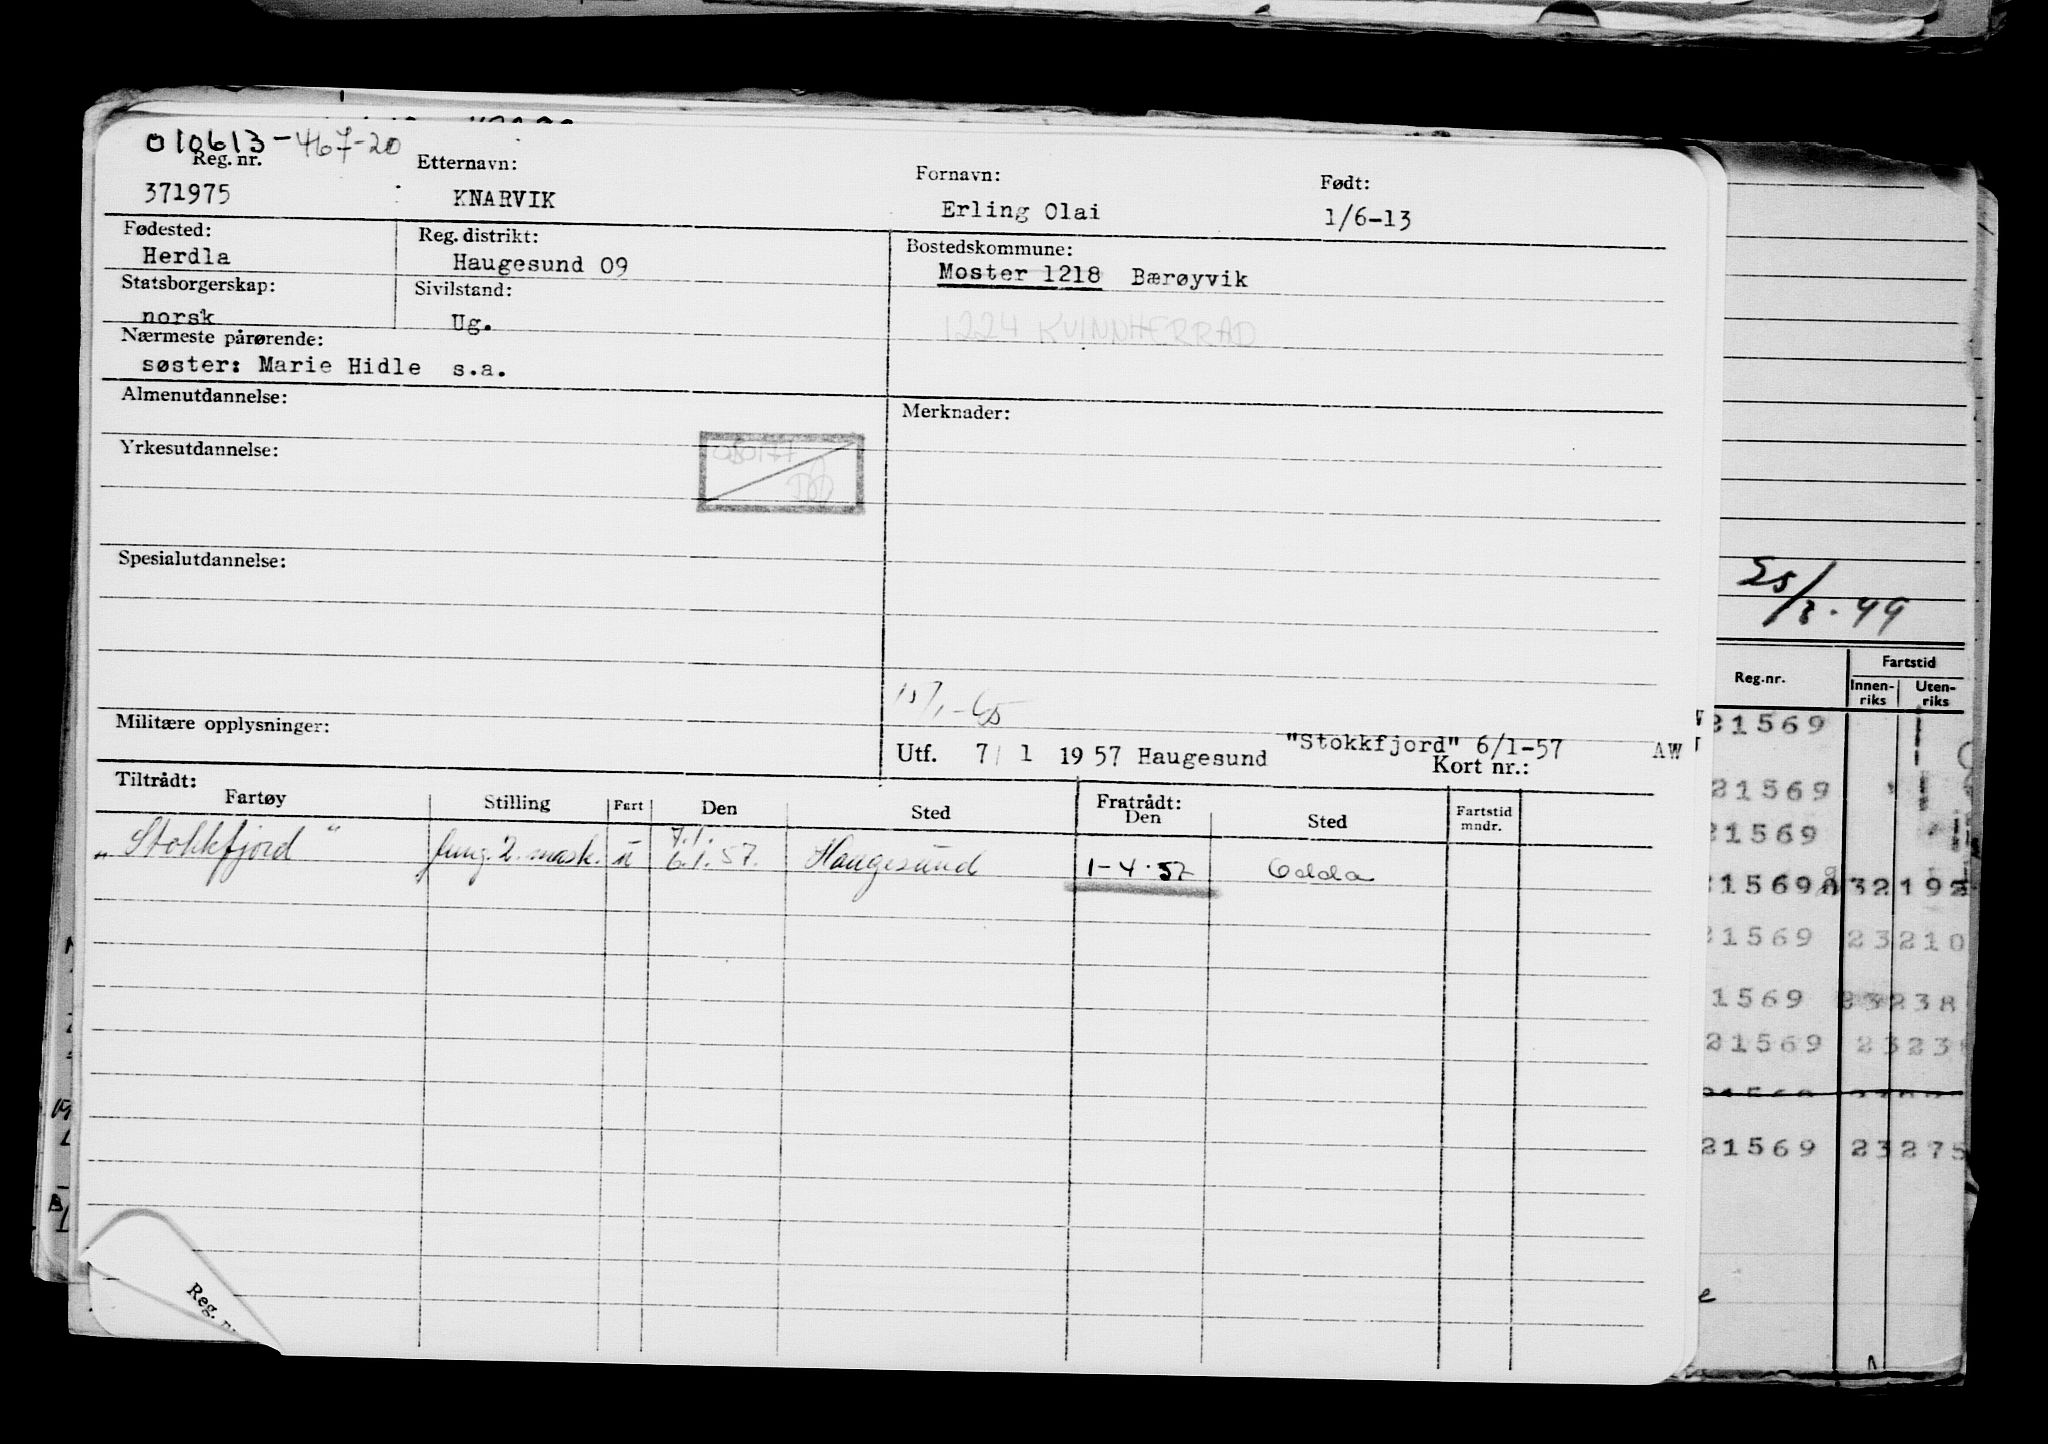 010613-467-20
Reg. nr. Etternavn: Fornavn: Født:
371975 KNARVIK Erling Olai 1/6-13
Fødested: Reg. distrikt: Bostedskommune:
Herdla Haugesund 09 Moster 1218 Bærøyvik
Statsborgerskap: Sivilstand:
norsk Ug. 1224 KVINNHERRAD
Nærmeste pårørende:
søster: Marie Hidle s.a.
Almenutdannelse: Merknader:
Yrkesutdannelse: 080177
Spesialutdannelse:
15/1-65
Militære opplysninger:
"Stokkfjord" 6/1-57
Utf. 7/ 1 1957 Haugesund Kort nr.: AW
Tiltrådt: Fratrådt:
Fartøy Stilling Fart Den Sted Den Sted Fartstid mndr.
7.1.
"Stokkfjord" fung. 2. mask. u 6.1.57. Haugesund 1-4-57 Odda
Reg. n
25/8.49
Reg.nr. Fartstid
Innen-riks Uten-riks
21569
21569
21569
21569 32192
21569 23210
1569 23238
21569 2323
21569
21569 23275